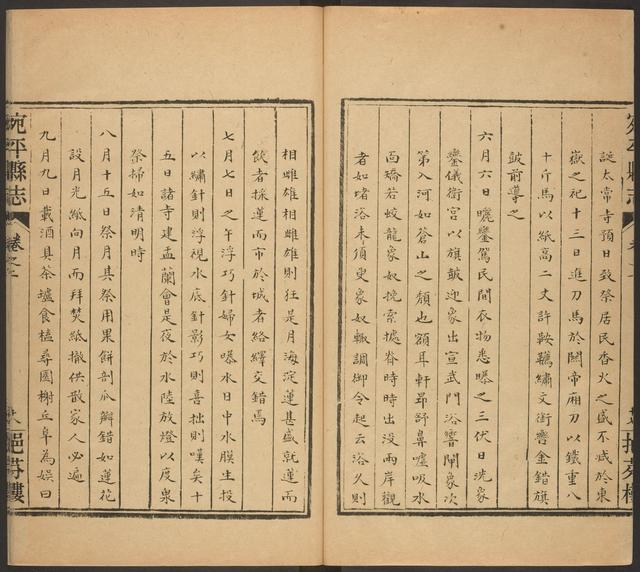 誕太常寺預日致祭居民香火之盛不減於東
嶽之祀十三日進刀馬於關帝廟刀以鐵重八
十斤馬以紙高二丈許鞍韉繡文銜轡金錯旗
鼓前導之
六月六日曬鑾駕民間衣物悉曝之三伏日洗象
鑾儀衛官以旗鼓迎象出宣武門浴響閘象次
第入河如蒼山之頹也額耳軒昂舒鼻噓吸水
面矯若蛟龍象奴挽索據脊時時出没兩岸觀
者如堵浴未須臾象奴輙調御令起云浴久則
相雌雄相雌雄則狂是月海淀蓮甚盛就蓮而
飲者採蓮而市於城者絡繹交錯焉
七月七日之午浮巧針婦女曝水日中水膜生投
以繡針則浮視水底針影巧則喜拙則嘆矣十
五日諸寺建盂蘭會是夜於水陸放燈以度衆
祭掃如清明時
八月十五日祭月其祭用果餅剖瓜瓣錯如蓮花
設月光紙向月而拜焚紙撤供散家人必遍
九月九日載酒具茶壚食榼尋園榭丘阜為娛曰
宛平縣志
卷之